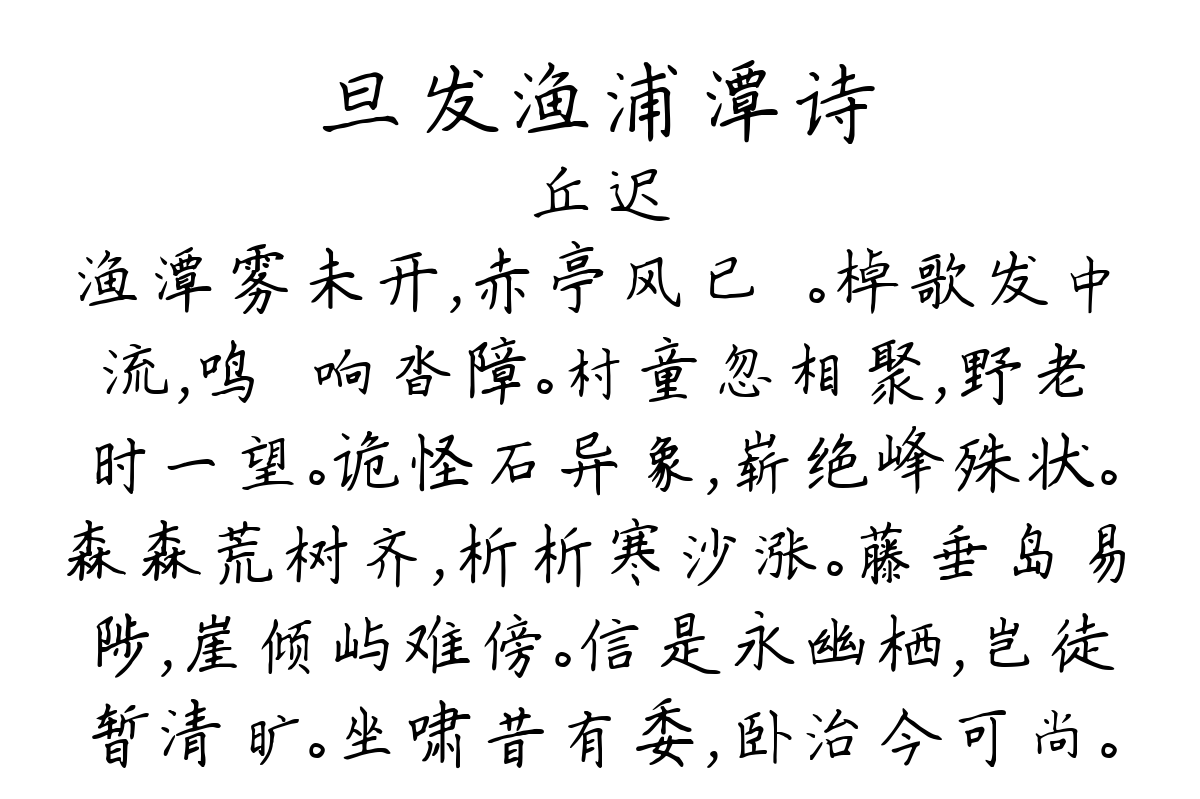 旦发渔浦潭诗
丘迟
渔潭雾未开,赤亭风已 。棹歌发中
流,鸣 响沓障。村童忽相聚,野老
时一望。诡怪石异象,崭绝峰殊状。
森森荒树齐,析析寒沙涨。藤垂岛易
陟,崖倾屿难傍。信是永幽栖,岂徒
暂清旷。坐啸昔有委,卧治今可尚。